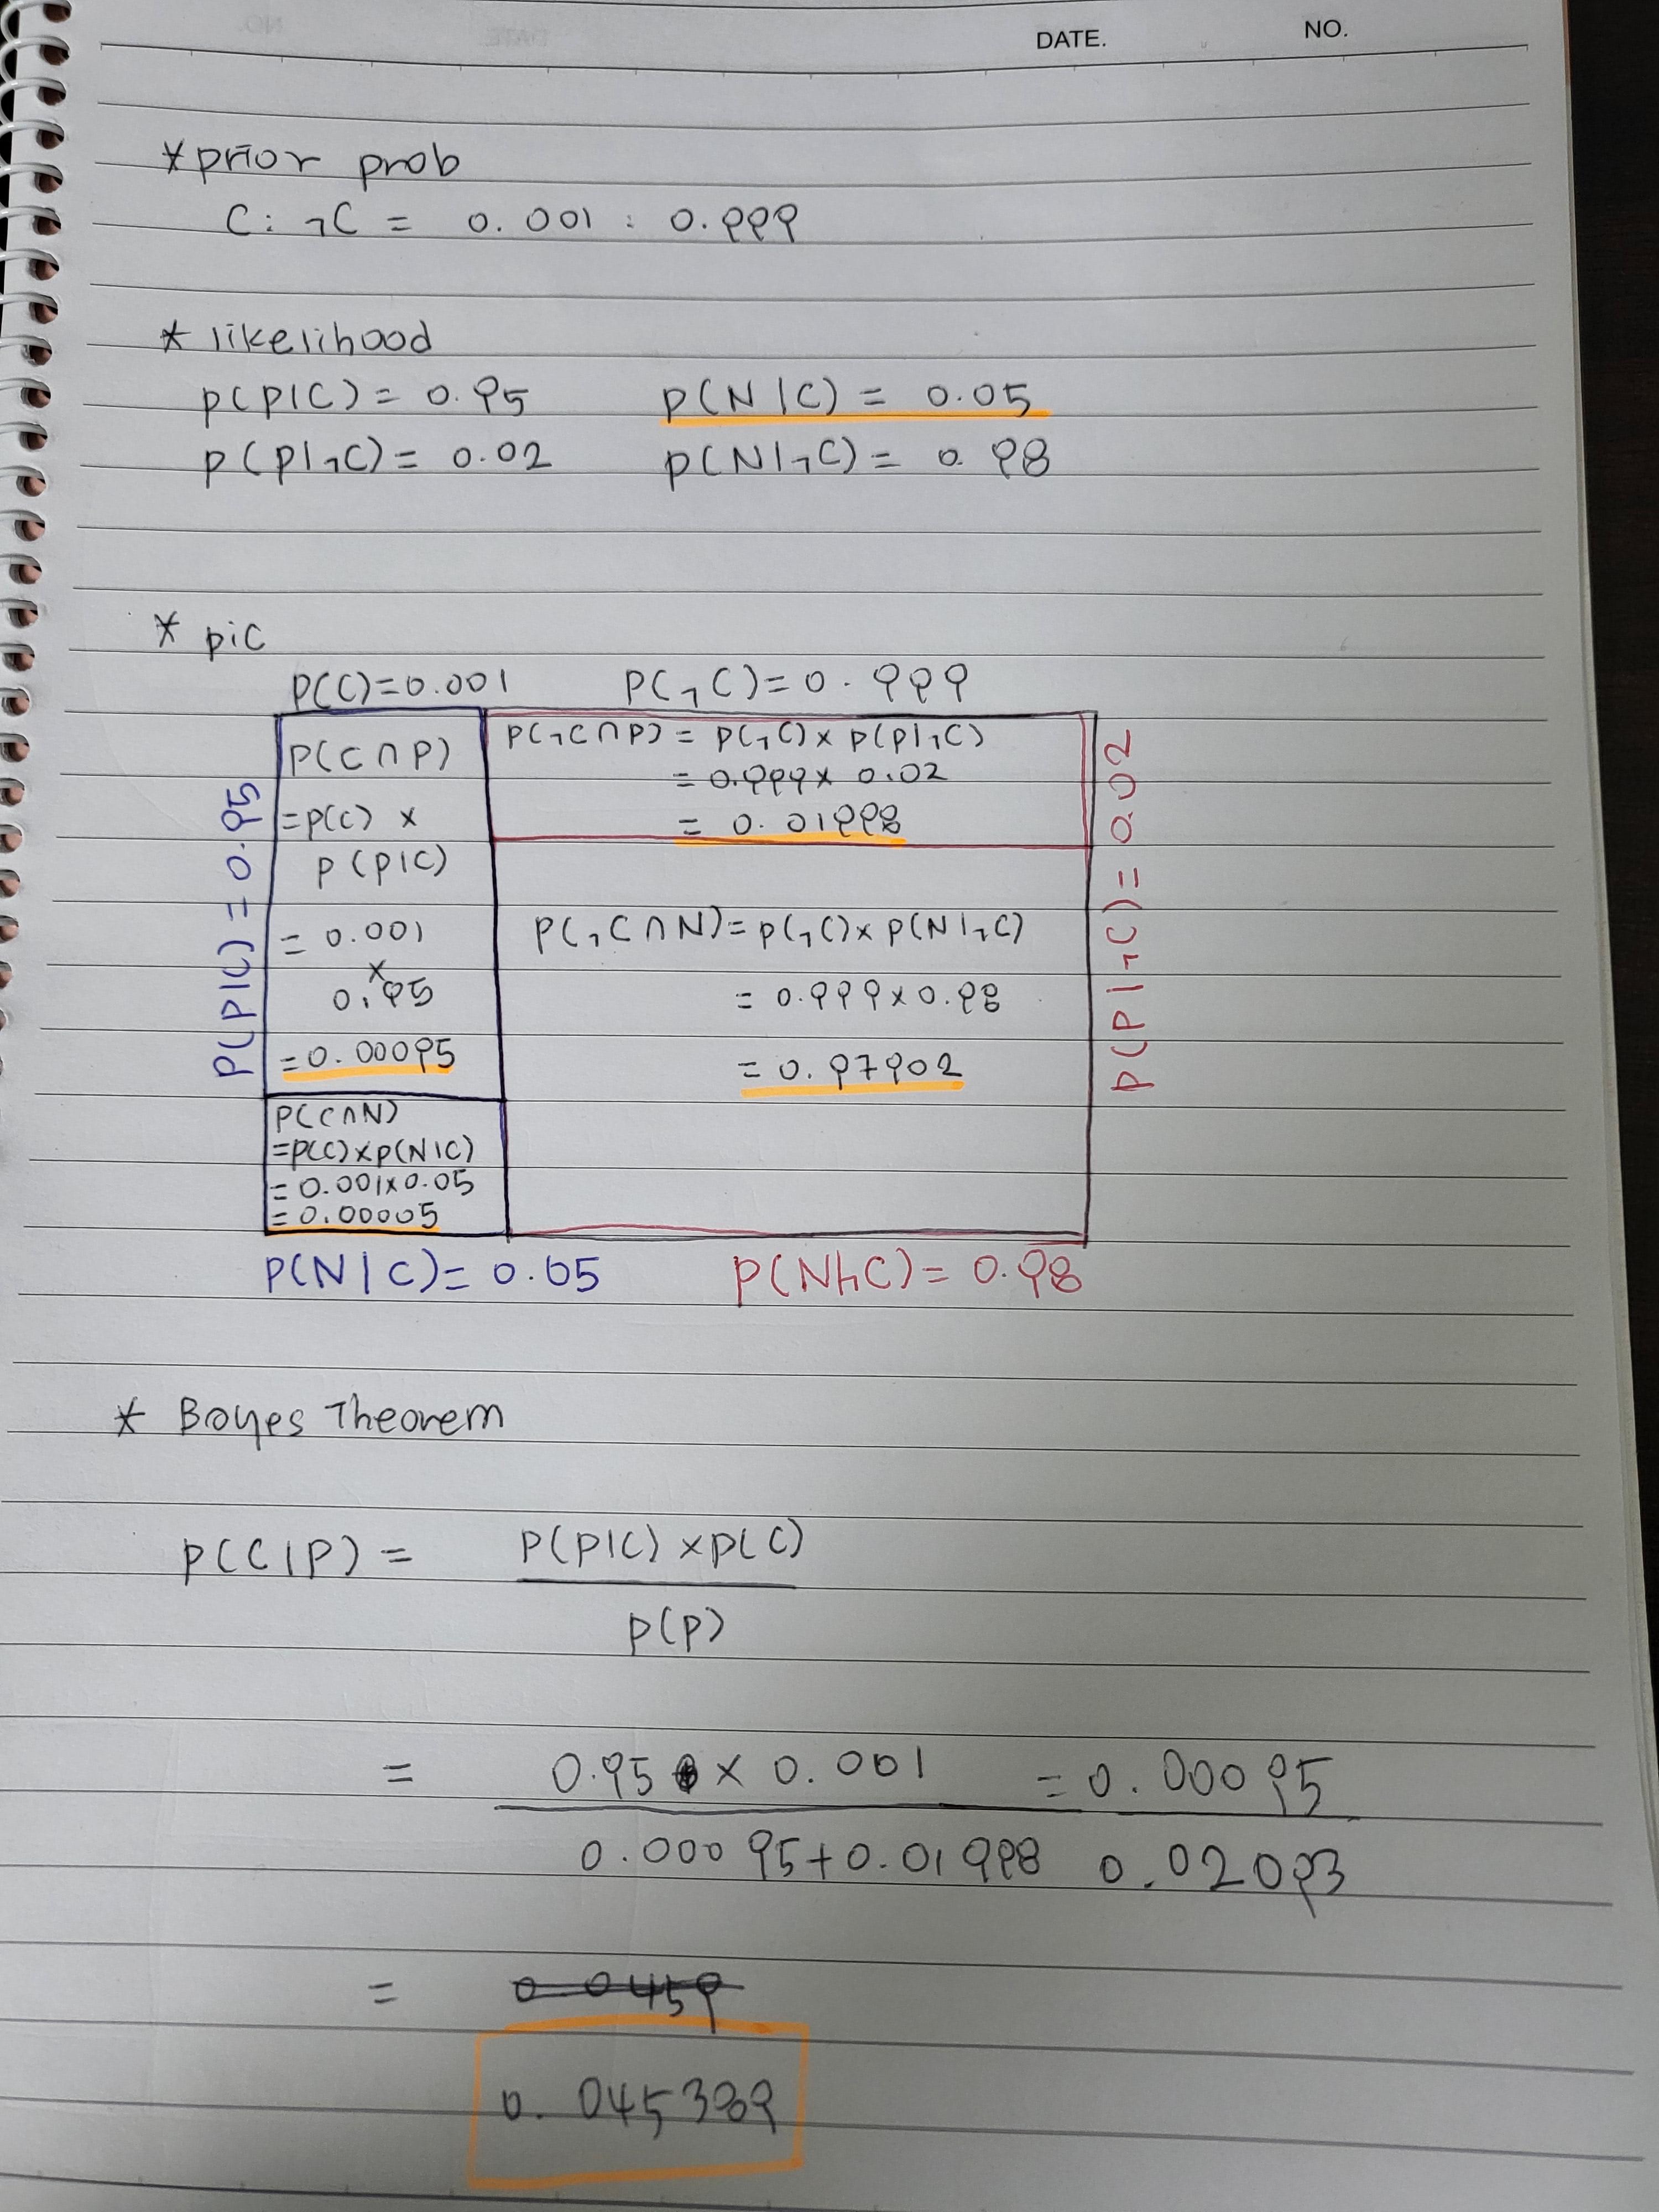 DATE. NO.
*prior prob
C: ¬C = 0.001 : 0.999
* likelihood
p(p|C) = 0.95 p(N|C) = 0.05
p(p|¬C) = 0.02 p(N|¬C) = 0.98
* pic
P(C)=0.001 P(¬C)=0.999
P(P|C)=0.95
P(C∩P)
=p(c) ×
p(p|C)
= 0.001
×
0.95
=0.00095
P(¬C∩P) = P(¬C)× P(P|¬C)
= 0.999× 0.02
= 0.01998
P(¬C∩N)= p(¬C)× p(N|¬C)
= 0.999×0.98
= 0.97902
P(P|¬C)= 0.02
P(C∩N)
=p(C)×p(N|C)
= 0.001×0.05
= 0.00005
P(N|C)= 0.05 P(N|¬C)= 0.98
* Bayes Theorem
P(C|P) = P(P|C) ×p(C)
p(p)
= 0.95 × 0.001 = 0.00095
0.00095+0.01998 0.02093
= 0.0459
0.045389